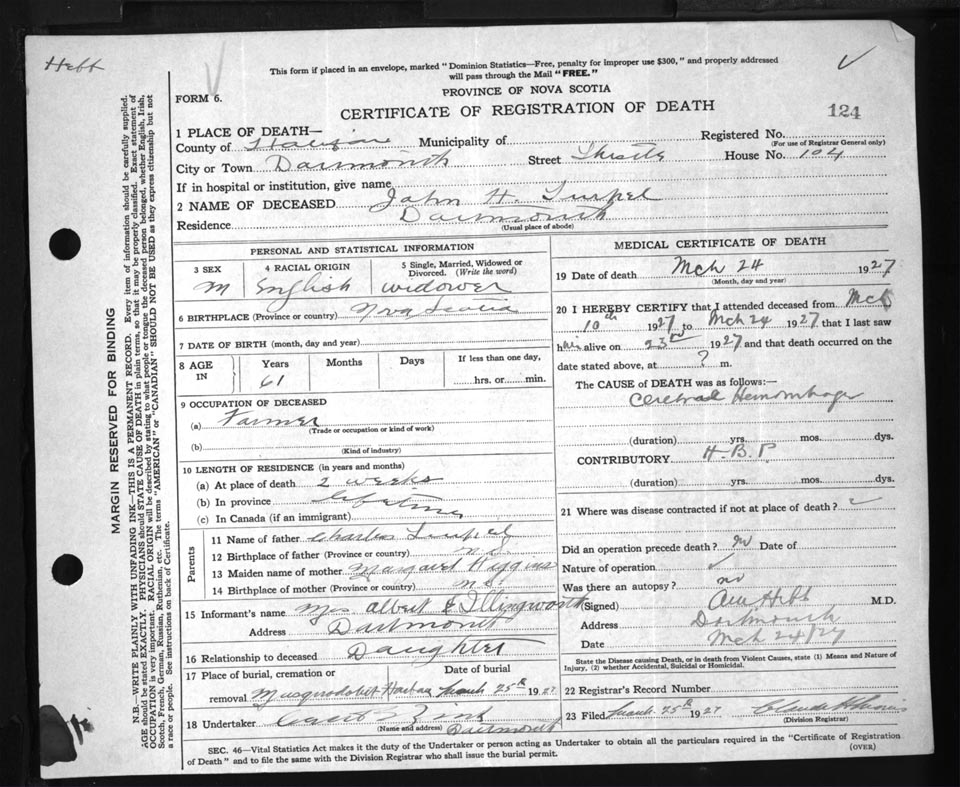 Hebb
This form if placed in an envelope, marked "Dominion Statistics—Free, penalty for improper use $300," and properly addressed
will pass through the Mail "FREE."
PROVINCE OF NOVA SCOTIA
FORM 6.
CERTIFICATE OF REGISTRATION OF DEATH
124
1 PLACE OF DEATH—
County of Halifax Municipality of Registered No.
(For use of Registrar General only)
City or Town Dartmouth Street Thistle House No. 104
If in hospital or institution, give name
2 NAME OF DECEASED John H. Turpel
Residence Dartmouth
(Usual place of abode)
PERSONAL AND STATISTICAL INFORMATION
3 SEX 4 RACIAL ORIGIN 5 Single, Married, Widowed or
Divorced. (Write the word)
M English Widower
6 BIRTHPLACE (Province or country) Nova Scotia
7 DATE OF BIRTH (month, day and year)
8 AGE IN Years Months Days If less than one day,
61 hrs. or min.
9 OCCUPATION OF DECEASED
(a) Farmer
(Trade or occupation or kind of work)
(b)
(Kind of industry)
10 LENGTH OF RESIDENCE (in years and months)
(a) At place of death 2 weeks
(b) In province lifetime
(c) In Canada (if an immigrant)
Parents
11 Name of father Charles Turpel
12 Birthplace of father (Province or country) N.S.
13 Maiden name of mother Margaret Wiggins
14 Birthplace of mother (Province or country) N.S.
15 Informant's name Mrs. Albert E Illingworth
Address Dartmouth
16 Relationship to deceased Daughter
17 Place of burial, cremation or Date of burial
removal Musquodoboit Harbour March 25th 1927
18 Undertaker
(Name and address) Dartmouth
MEDICAL CERTIFICATE OF DEATH
19 Date of death Mch 24 1927
(Month, day and year)
20 I HEREBY CERTIFY that I attended deceased from Mch
10th 1927 to Mch 24 1927 that I last saw
him alive on 23rd 1927 and that death occurred on the
date stated above, at ? m.
The CAUSE of DEATH was as follows:—
Cerebral Hemorrhage
(duration) yrs. mos. dys.
CONTRIBUTORY H.B.P
(duration) yrs. mos. dys.
21 Where was disease contracted if not at place of death?
Did an operation precede death? no Date of
Nature of operation
Was there an autopsy? no
(Signed) Hebb M.D.
Address Dartmouth
Date Mch 24/27
State the Disease Causing Death, or in death from Violent Causes, state (1) Means and Nature of
Injury, (2) whether Accidental, Suicidal or Homicidal.
22 Registrar's Record Number
23 Filed March 25th 1927
(Division Registrar)
SEC. 46—Vital Statistics Act makes it the duty of the Undertaker or person acting as Undertaker to obtain all the particulars required in the "Certificate of Registration
of Death" and to file the same with the Division Registrar who shall issue the burial permit. (OVER)
MARGIN RESERVED FOR BINDING
N.B.—WRITE PLAINLY WITH UNFADING INK—THIS IS A PERMANENT RECORD. Every item of information should be carefully supplied.
AGE should be stated EXACTLY. PHYSICIANS should STATE CAUSE OF DEATH in plain terms, so that it may be properly classified. Exact statement of
OCCUPATION is very important. RACIAL ORIGIN will be described by stating to what people or tongue the deceased person belonged, whether English, Irish,
Scotch, French, German, Russian, Ruthenian, etc. The terms "AMERICAN" or "CANADIAN" SHOULD NOT BE USED as they express citizenship but not
a race or people. See instructions on back of Certificate.